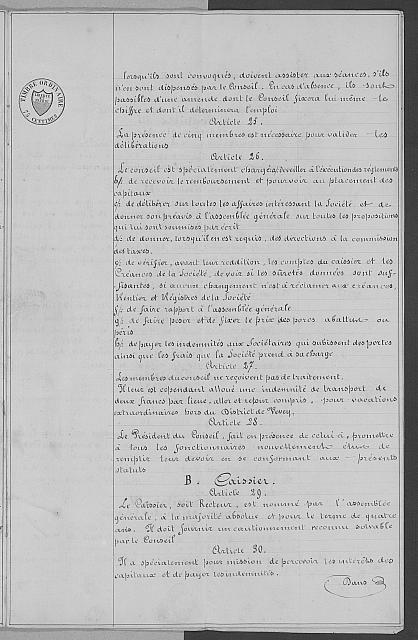 TIMBRE ORDINAIRE
CENTIMES
lorsqu'ils sont convoqués, doivent assister aux séances, s'ils
n'en sont dispensés par le Conseil. En cas d'absence, ils sont
passibles d'une amende dont le Conseil fixera lui même le
chiffre et dont il déterminera l'emploi
Article 25.
La présence de cinq membres est nécessaire pour valider les
délibérations
Article 26.
Le conseil est spécialement chargé: a/ de veiller à l'exécution des règlements
b/. de recevoir le remboursement et pourvoir au placement des
capitaux
c/. de délibérer sur toutes les affaires intéressant la Société et de
donner son préavis à l'assemblée générale sur toutes les propositions
qui lui sont soumises par écrit
d/. de donner, lorsqu'il en est requis, des directions à la commission
des taxes.
e/. de vérifier, avant leur reddition, les comptes du caissier et les
Créances de la Société, de voir si les sûretés données sont suf-
fisantes, si aucun changement n'est à réclamer aux créances,
Rentier et Régistres de la Société
f/. de faire rapport à l'assemblée générale
g/. de faire peser et de fixer le prix des porcs abattus ou
péris
h/. de payer les indemnités aux Sociétaires qui subissent des pertes
ainsi que les frais que la Société prend à sa charge
Article 27.
Les membres du conseil ne reçoivent pas de traitement.
Il leur est cependant alloué une indemnité de transport de
deux francs par lieue, aller et retour compris, pour vacations
extraordinaires hors du District de Vevey.
Article 28.
Le Président du Conseil, fait en présence de celui-ci, promettre
à tous les fonctionnaires nouvellement élus de
remplir leur devoir en se conformant aux présents
statuts
B. Caissier.
Article 29.
Le Caissier, soit Recteur, est nommé par l'assemblée
générale, à la majorité absolue et pour le terme de quatre
ans. Il doit fournir un cautionnement reconnu solvable
par le Conseil
Article 30.
Il a spécialement pour mission de percevoir les intérêts des
capitaux et de payer les indemnités.
Dans